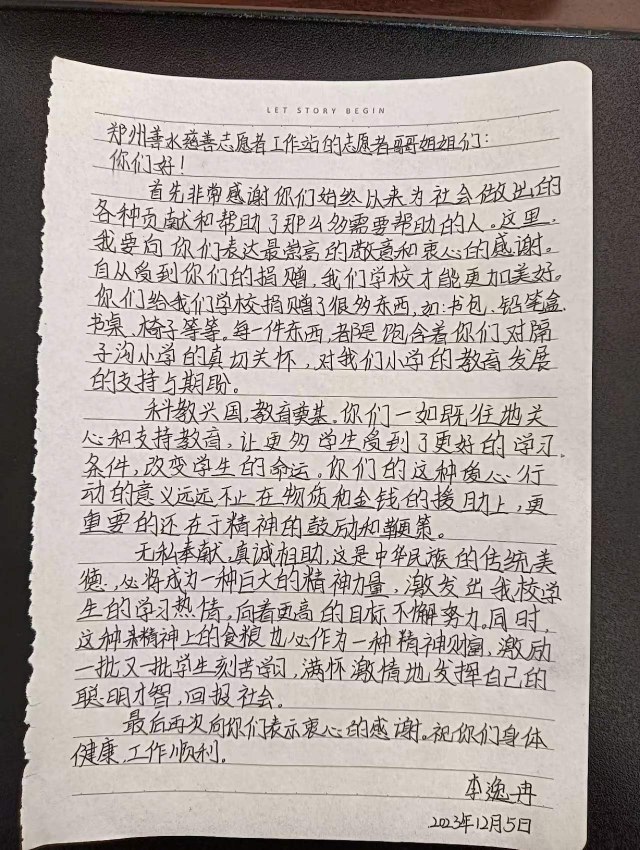 LET STORY BEGIN
郑州善水慈善志愿者工作站的志愿者哥哥姐姐们：
你们好！
首先非常感谢你们始终以来为社会做出的
各种贡献和帮助了那么多需要帮助的人。这里，
我要向你们表达最崇高的敬意和衷心的感谢。
自从受到你们的捐赠，我们学校才能更加美好。
你们给我们学校捐赠了很多东西，如：书包、铅笔盒、
书桌、椅子等等。每一件东西，都是饱含着你们对隔
子沟小学的真切关怀，对我们小学的教育发展
的支持与期盼。
科教兴国，教育奠基。你们一如既往地关
心和支持教育，让更多学生受到了更好的学习
条件，改变学生的命运。你们的这种爱心行
动的意义远远不止在物质和金钱的援助上，更
重要的还在于精神的鼓励和鞭策。
无私奉献，真诚相助，这是中华民族的传统美
德，必将成为一种巨大的精神力量，激发出我校学
生的学习热情，向着更高的目标不懈努力。同时，
这种来精神上的食粮也必作为一种精神财富，激励
一批又一批学生刻苦学习，满怀激情地发挥自己的
聪明才智，回报社会。
最后再次向你们表示衷心的感谢。祝你们身体
健康，工作顺利。
李逸冉
2023年12月5日